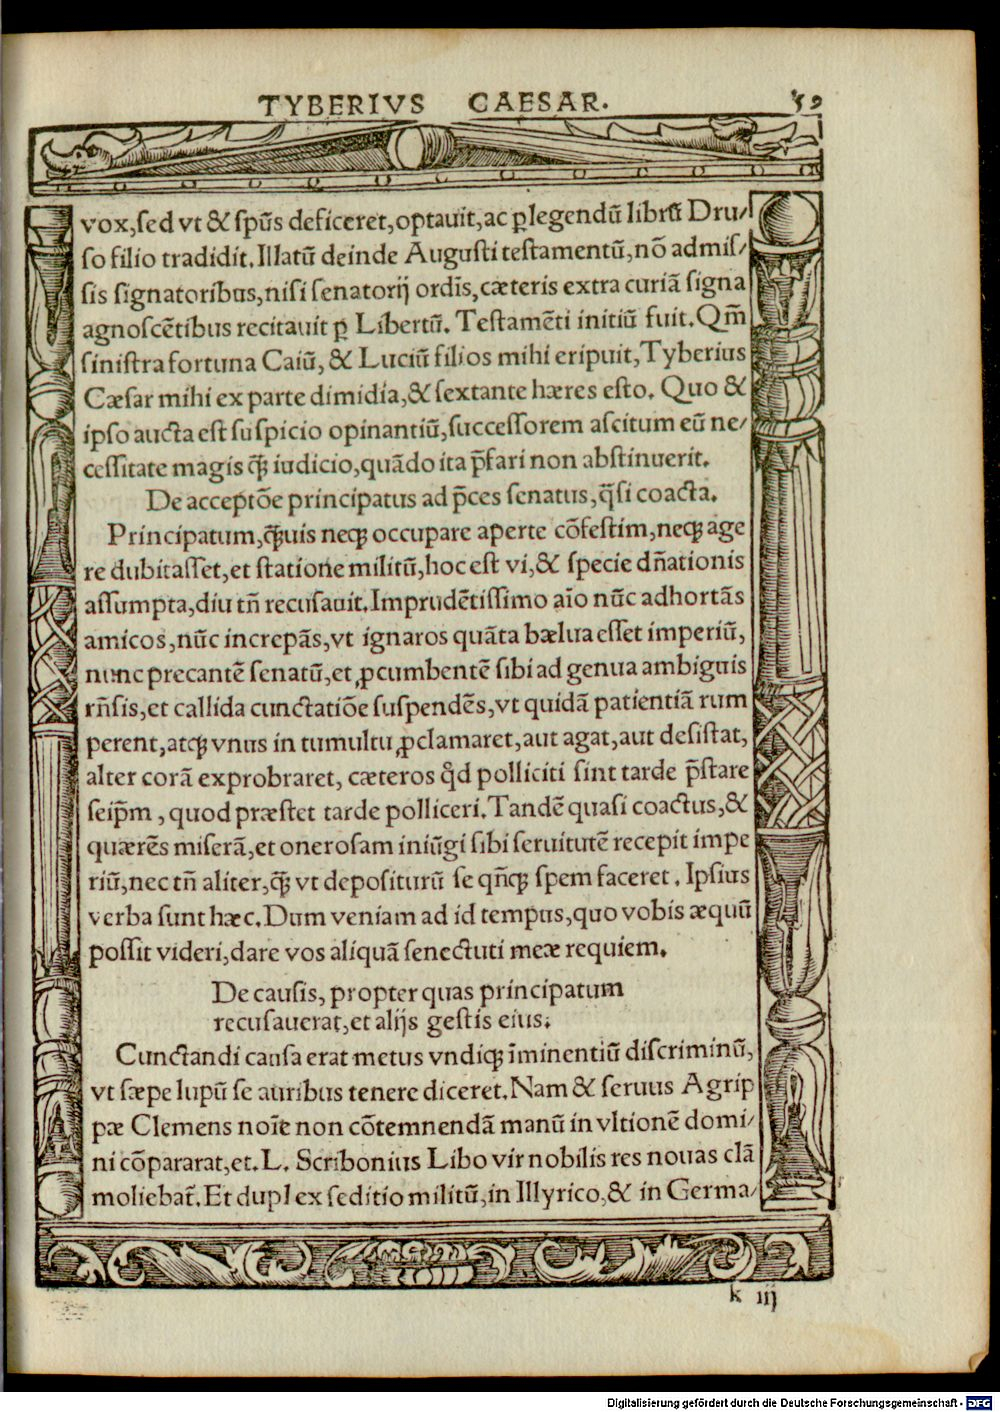 TYBERIVS CAESAR. 59
vox,sed vt & spūs deficeret,optauit,ac ꝑlegendū librū Dru/
so filio tradidit.Illatū deinde Augusti testamentū,nō admis/
sis signatoribus,nisi senatorij ordis,cæteris extra curiā signa
agnoscētibus recitauit ꝑ Libertū. Testamēti initiū fuit.Qm̄
sinistra fortuna Caiū, & Luciū filios mihi eripuit,Tyberius
Cæsar mihi ex parte dimidia,& sextante hæres esto. Quo &
ipso aucta est suspicio opinantiū,successorem ascitum eū ne/
cessitate magis q̄ꝫ iudicio,quādo ita p̄fari non abstinuerit.
De acceptōe principatus ad p̄ces senatus,q̄si coacta.
Principatum,q̄ꝫuis neqꝫ occupare aperte cōfestim,neqꝫ age
re dubitasset,et statione militū,hoc est vi,& specie dn̄ationis
assumpta,diu tn̄ recusauit.Imprudētissimo aīo nūc adhortās
amicos,nūc increpās,vt ignaros quāta bælua esset imperiū,
nunc precantē senatū,et ꝓcumbentē sibi ad genua ambiguis
rn̄sis,et callida cunctatiōe suspendēs,vt quidā patientiā rum
perent,atqꝫ vnus in tumultu ꝓclamaret,aut agat,aut desistat,
alter corā exprobraret, cæteros q̊d polliciti sint tarde p̄stare
seip̄m, quod præstet tarde polliceri.Tandē quasi coactus,&
quærēs miserā,et onerosam iniūgi sibi seruitutē recepit impe
riū,nec tn̄ aliter,q̄ꝫ vt depositurū se qn̄qꝫ spem faceret. Ipsius
verba sunt hæc.Dum veniam ad id tempus,quo vobis æquū
possit videri,dare vos aliquā senectuti meæ requiem.
De causis, propter quas principatum
recusauerat,et alijs gestis eius.
Cunctandi causa erat metus vndiqꝫ īminentiū discriminū,
vt sæpe lupū se auribus tenere diceret.Nam & seruus Agrip
pæ Clemens noīe non cōtemnendā manū in vltionē domi/
ni cōpararat,et.L. Scribonius Libo vir nobilis res nouas clā
moliebat̄.Et dupl ex seditio militū,in Illyrico,& in Germa/
k iij
Digitalisierung gefördert durch die Deutsche Forschungsgemeinschaft - DFG